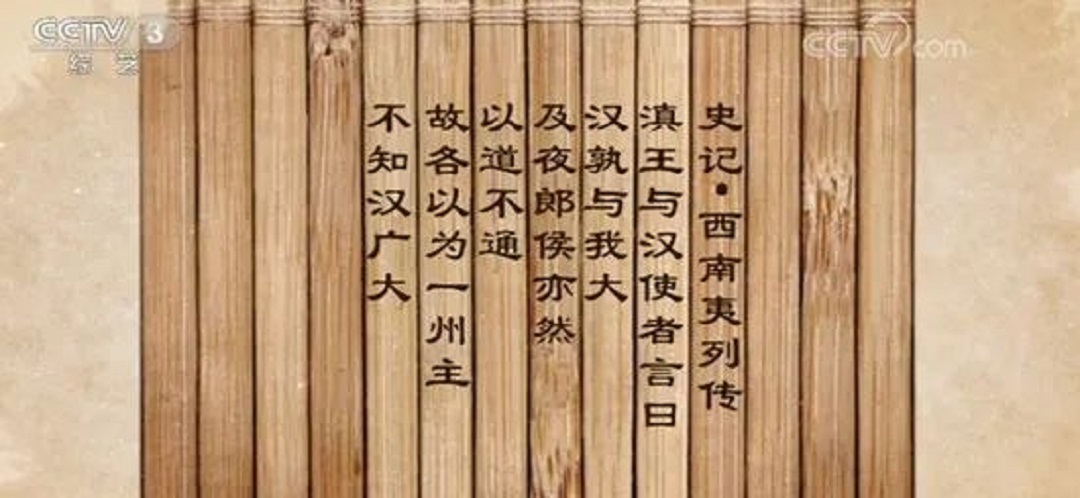 CCTV 3
综艺
CCTV.com
史记·西南夷列传
滇王与汉使者言曰
汉孰与我大
及夜郎侯亦然
以道不通
故各以为一州主
不知汉广大